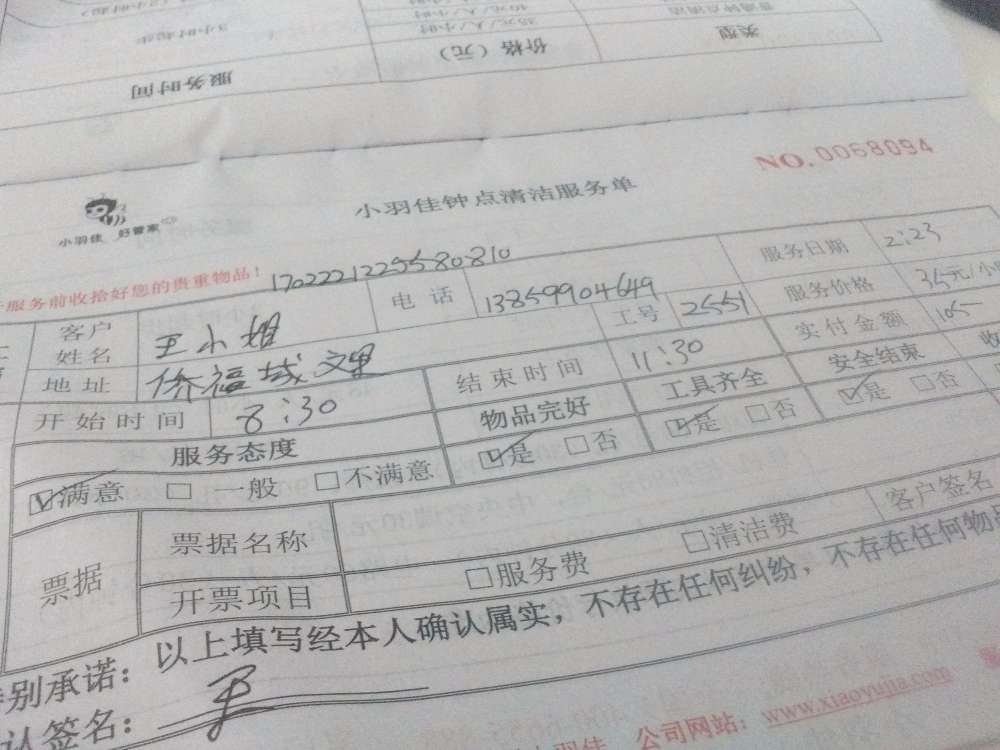 服务时间 价格（元） 类型
35元/人/小时
NO.0068094
小羽佳 好管家
小羽佳钟点清洁服务单
服务前收拾好您的贵重物品！
1702221225580810
客户姓名 王小姐 电话 13859904649 服务日期 2:23
地址 侨福城 工号 2551 服务价格 35元/小
开始时间 8:30 结束时间 11:30 实付金额 105
服务态度 物品完好 工具齐全 安全结束
☑满意 □一般 □不满意 ☑是 □否 ☑是 □否 ☑是 □否
票据 票据名称 客户签名
开票项目 □服务费 □清洁费
别承诺：以上填写经本人确认属实，不存在任何纠纷，不存在任何物品
认签名：
公司网站：www.xiaoyujia.com